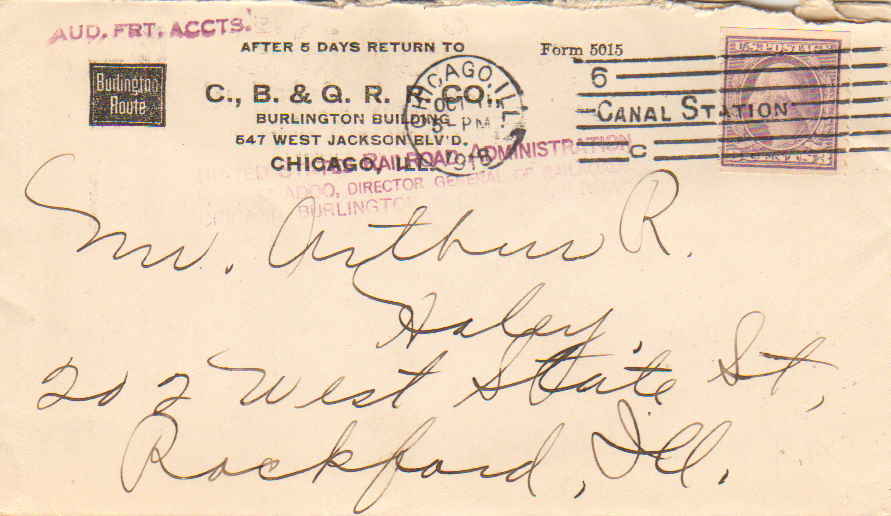 AUD. FRT. ACCTS.
AFTER 5 DAYS RETURN TO
Form 5015
Burlington
Route
C., B. & Q. R. R. CO.,
BURLINGTON BUILDING
547 WEST JACKSON BLV'D.
CHICAGO, ILL.
CHICAGO, ILL.
OCT
5-PM
1918
6
CANAL STATION
C
U.S. POSTAGE
RAILROAD ADMINISTRATION
ADOO, DIRECTOR GENERAL OF RAILROADS
BURLINGTON
Mr. Arthur R.
Haley,
202 West State St,
Rockford, Ill.